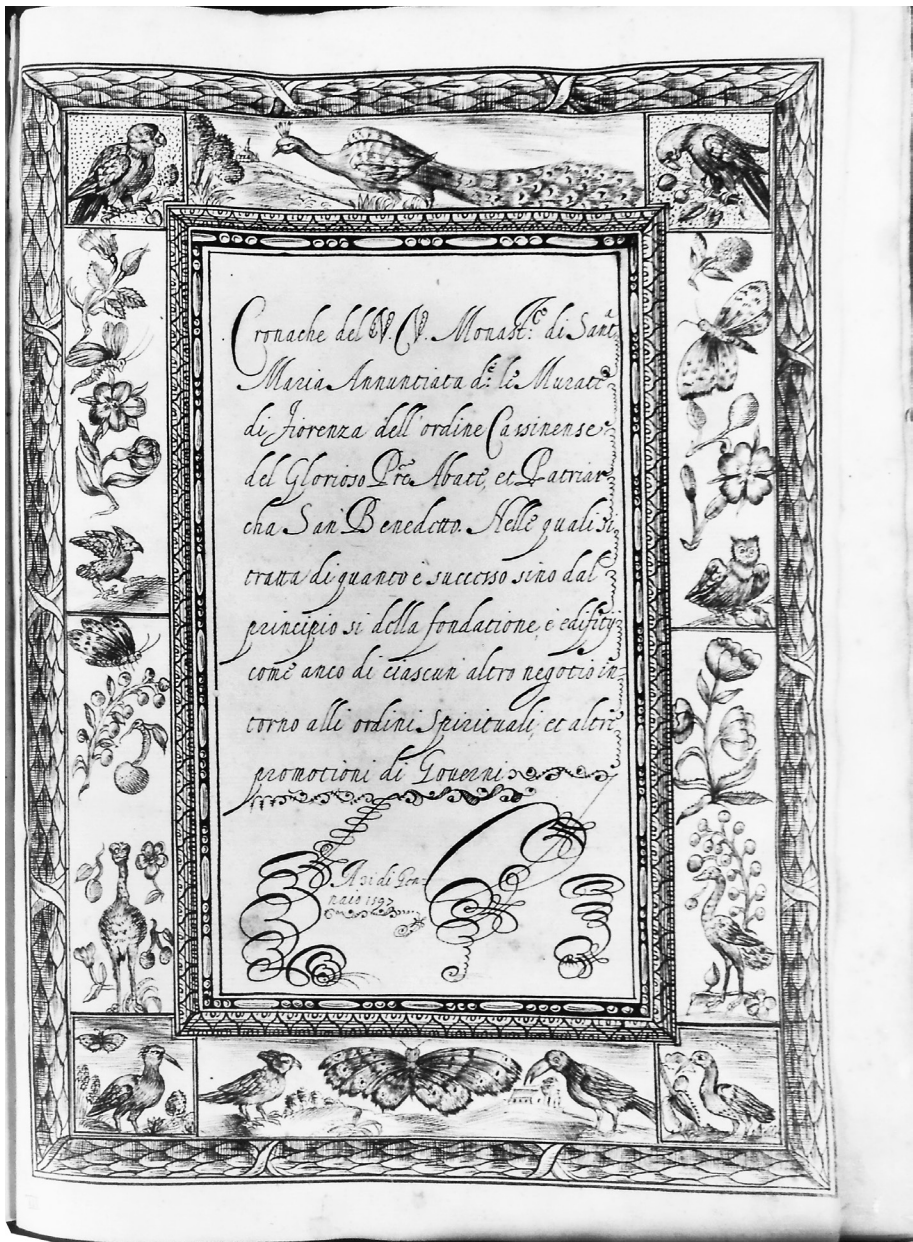 Cronache del V. V. Monast.º di Santa
Maria Annuntiata d.e le Murate
di Fiorenza dell'ordine Cassinense
del Glorioso Pre Abate, et Patriar
cha San Benedetto. Nelle quali si
tratta di quanto è successo sino dal
principio si della fondatione, è edifitij
come anco di ciascun altro negotio in-
torno alli ordini Spirituali, et altre
promotioni di Governi
di Gen-
naio 1597